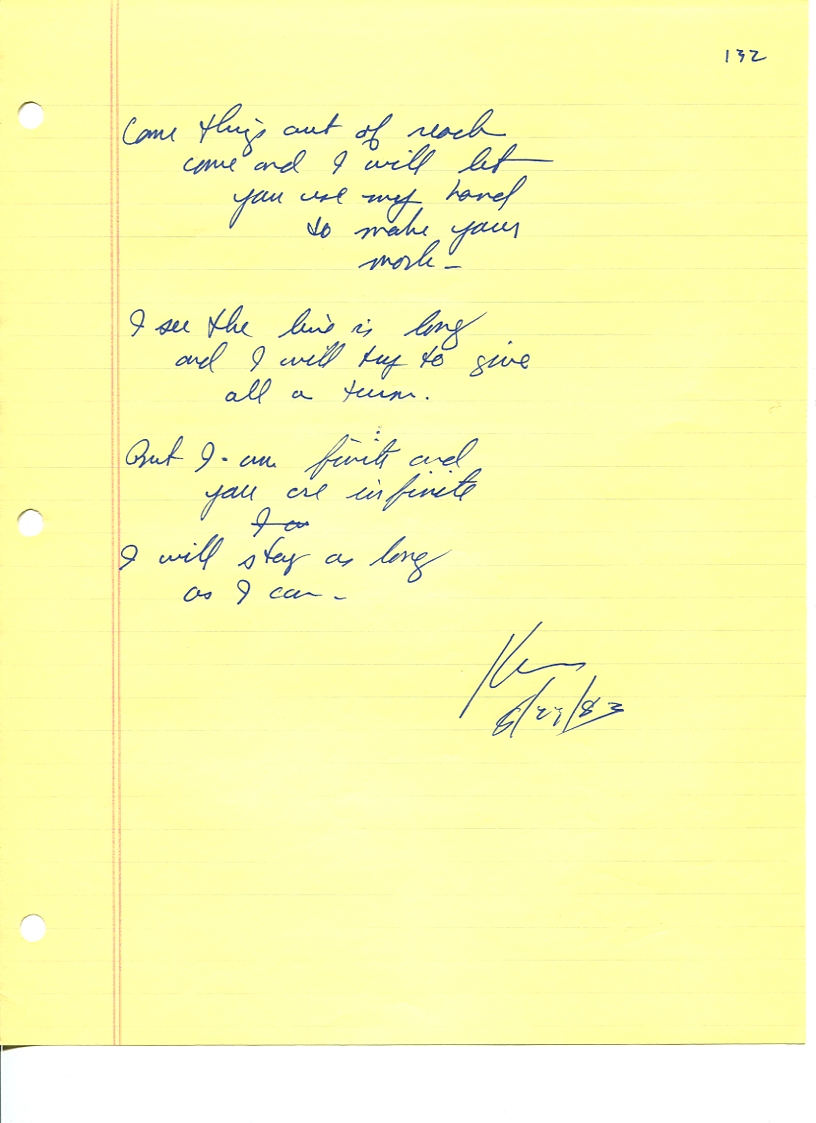 132
Come things out of reach
come and I will let
you use my hand
to make your
mark -
I see the line is long
and I will try to give
all a turn.
But I am finite and
you are infinite
I a
I will stay as long
as I can -
Ken
6/27/83